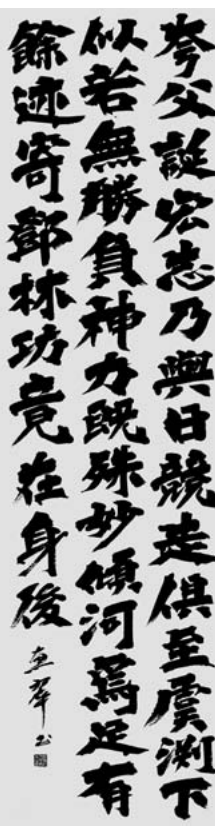 夸父誕宏志乃與日競走俱至虞淵下
似若無勝負神力既殊妙傾河焉足有
餘迹寄鄧林功竟在身後